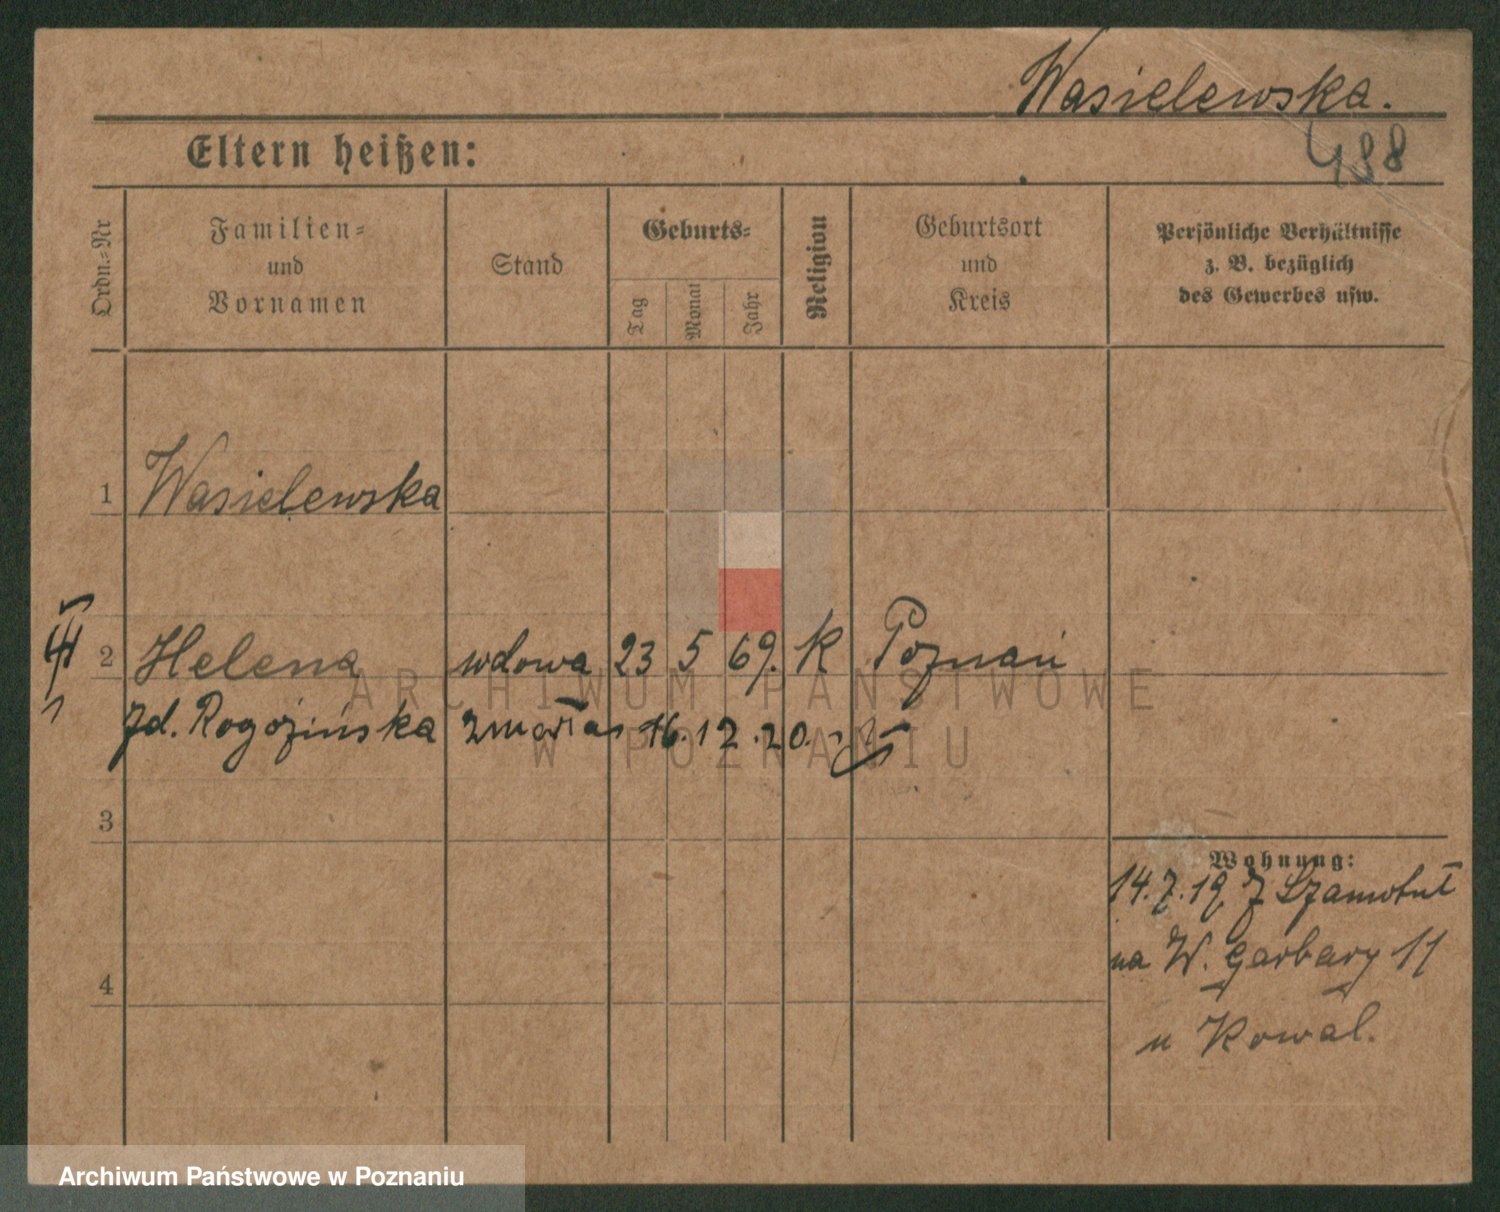 Wasielewska.
488
Eltern heißen:
Ordn.-Nr
Familien-
und
Vornamen
Stand
Geburts-
Tag
Monat
Jahr
Religion
Geburtsort
und
Kreis
Persönliche Verhältnisse
z. B. bezüglich
des Gewerbes usw.
1 Wasielewska
2 Helena wdowa 23 5 69. K Poznań
zd. Rogozińska zmarła 16.12.20.
3
4
Wohnung:
14.7.19 z Szamotuł
na W. Garbary 11
u Kowal.
ARCHIWUM PAŃSTWOWE
W POZNANIU
Archiwum Państwowe w Poznaniu